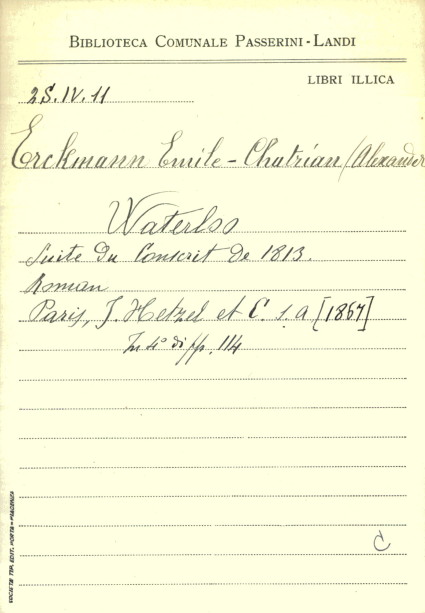 BIBLIOTECA COMUNALE PASSERINI-LANDI
LIBRI ILLICA
2S.IV.11
Erckmann Emile-Chatrian (Alexander
Waterloo
Suite du Conscrit de 1813.
Roman
Paris, J. Hetzel et C. s.a [1867]
In 4° di pp. 114
C
SOCIETÀ TIP. EDIT. PORTA-PIACENZA